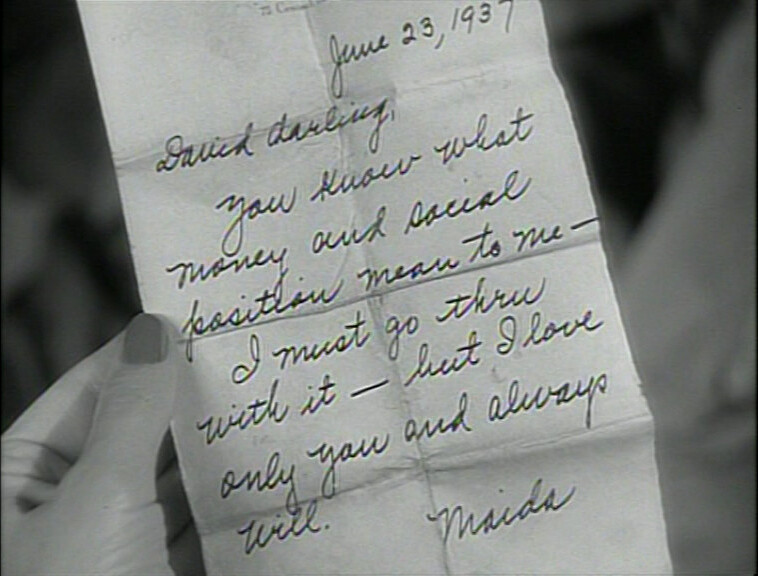 June 23, 1937
David darling,
you know what
money and social
position mean to me —
I must go thru
with it — but I love
only you and always
will. Maida